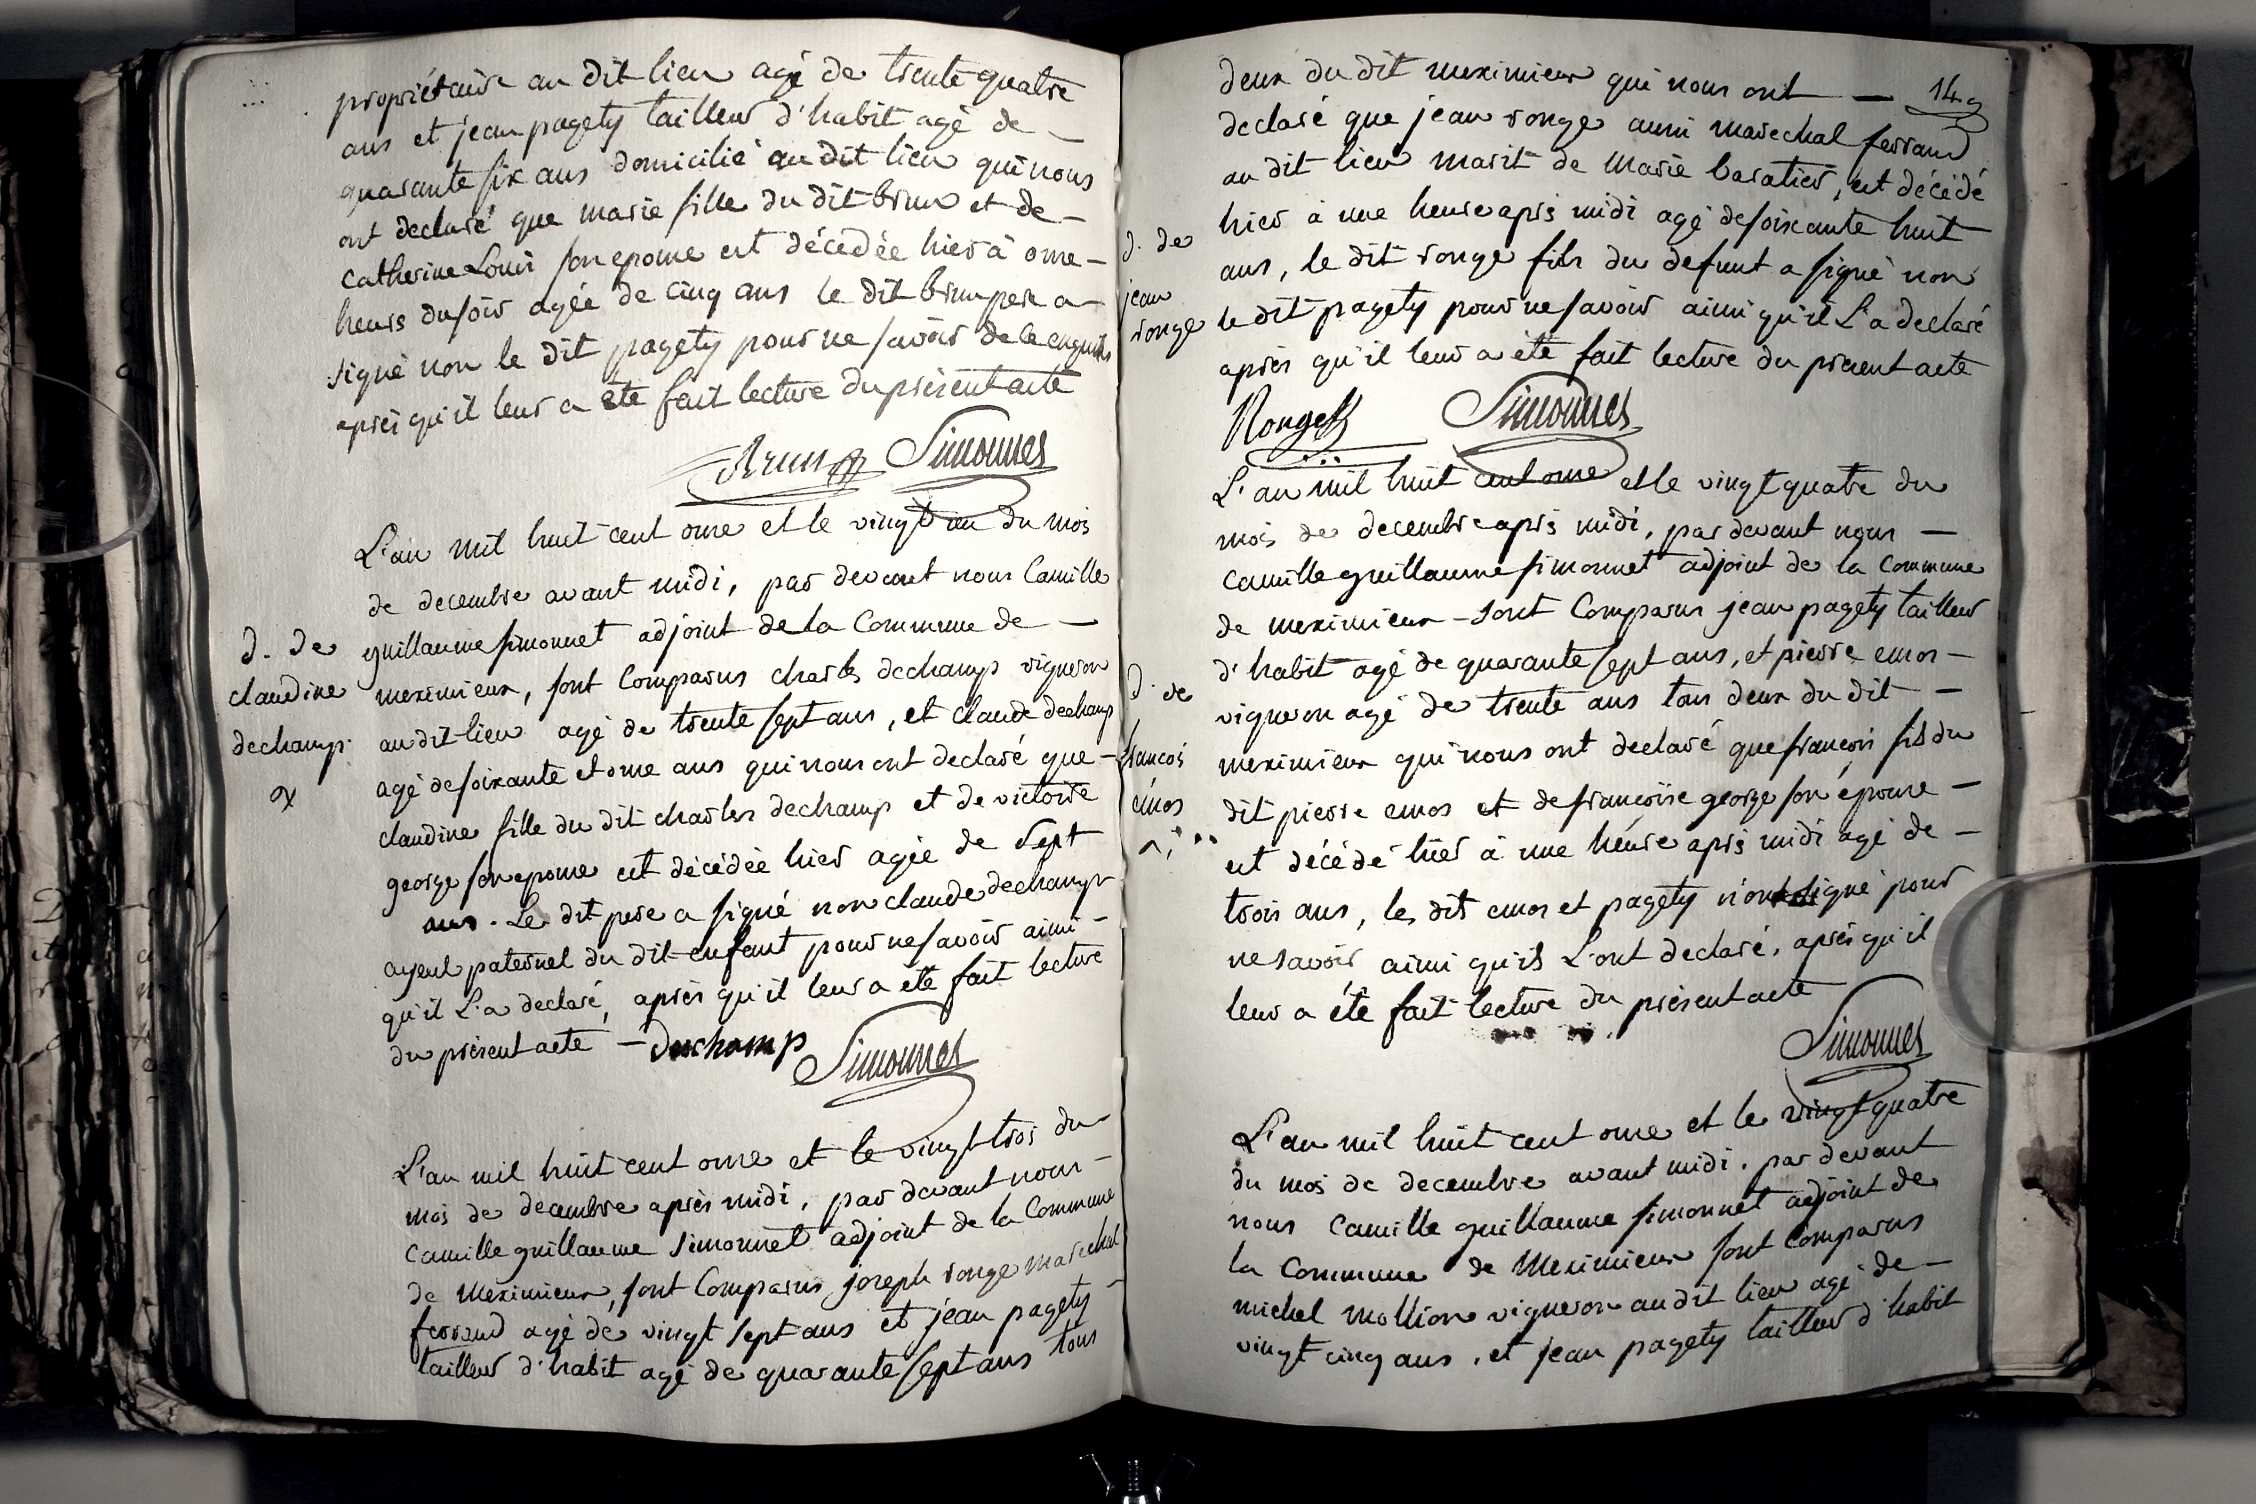 propriétaire au dit lieu agé de trente quatre
ans et jean pagety tailleur d'habit agé de —
quarante six ans domicilié au dit lieu qui nous
ont declaré que marie fille du dit brun et de —
catherine Louis son epouse est décédée hier à onze —
heures du soir agée de cinq ans le dit brun pere a —
signé non le dit pagety pour ne savoir de ce enquis
après qu'il leur a été fait lecture du présent acte
Brun Simonnet
L'an mil huit cent onze et le vingt un du mois
de decembre avant midi, par devant nous Camille
guillaume simonnet adjoint de la Commune de —
d. de
claudine
dechamp
meximieux, sont Comparus charles dechamp vigneron
au dit lieu agé de trente sept ans, et claude dechamp
agé de soixante et onze ans qui nous ont declaré que —
claudine fille du dit charles dechamp et de victoire
george son epouse est décédée hier agée de sept
ans. Le dit pere a signé non claude dechamp
ayeul paternel du dit enfant pour ne savoir ainsi —
qu'il L'a declaré, après qu'il leur a été fait lecture
du présent acte — Duchamp Simonnet
L'an mil huit cent onze et le vingt trois du —
mois de decembre après midi, par devant nous —
Camille guillaume simonnet adjoint de la Commune
de Meximieux, sont Comparus joseph ronge marechal
ferrand agé de vingt sept ans et jean pagety —
tailleur d'habit agé de quarante sept ans tous
deux du dit meximieux qui nous ont — 149
declaré que jean ronge aussi marechal ferrand
au dit lieu marit de marie baratier, est décédé
hier à une heure après midi agé de soixante huit —
d. de
jean
ronge
ans, le dit ronge fils du defunt a signé non
le dit pagety pour ne savoir ainsi qu'il L'a declaré
après qu'il leur a été fait lecture du present acte
Ronge Simonnet
L'an mil huit cent onze et le vingt quatre du
mois de decembre après midi, par devant nous —
camille guillaume simonnet adjoint de la Commune
de meximieux — sont Comparus jean pagety tailleur
d'habit agé de quarante sept ans, et pierre emos —
d. de
francois
émos
vigneron agé de trente ans tous deux du dit —
meximieux qui nous ont declaré que francois fils du
dit pierre emos et de françoise george son épouse —
est décédé hier à une heure après midi agé de —
trois ans, les dits emos et pagety n'ont signé pour
ne savoir ainsi qu'ils L'ont declaré, après qu'il
leur a été fait lecture du présent acte
Simonnet
L'an mil huit cent onze et le vingt quatre
du mois de decembre avant midi, par devant
nous Camille guillaume simonnet adjoint de
la Commune de Meximieux sont Comparus
michel mollion vigneron au dit lieu agé de —
vingt cinq ans, et jean pagety tailleur d'habit